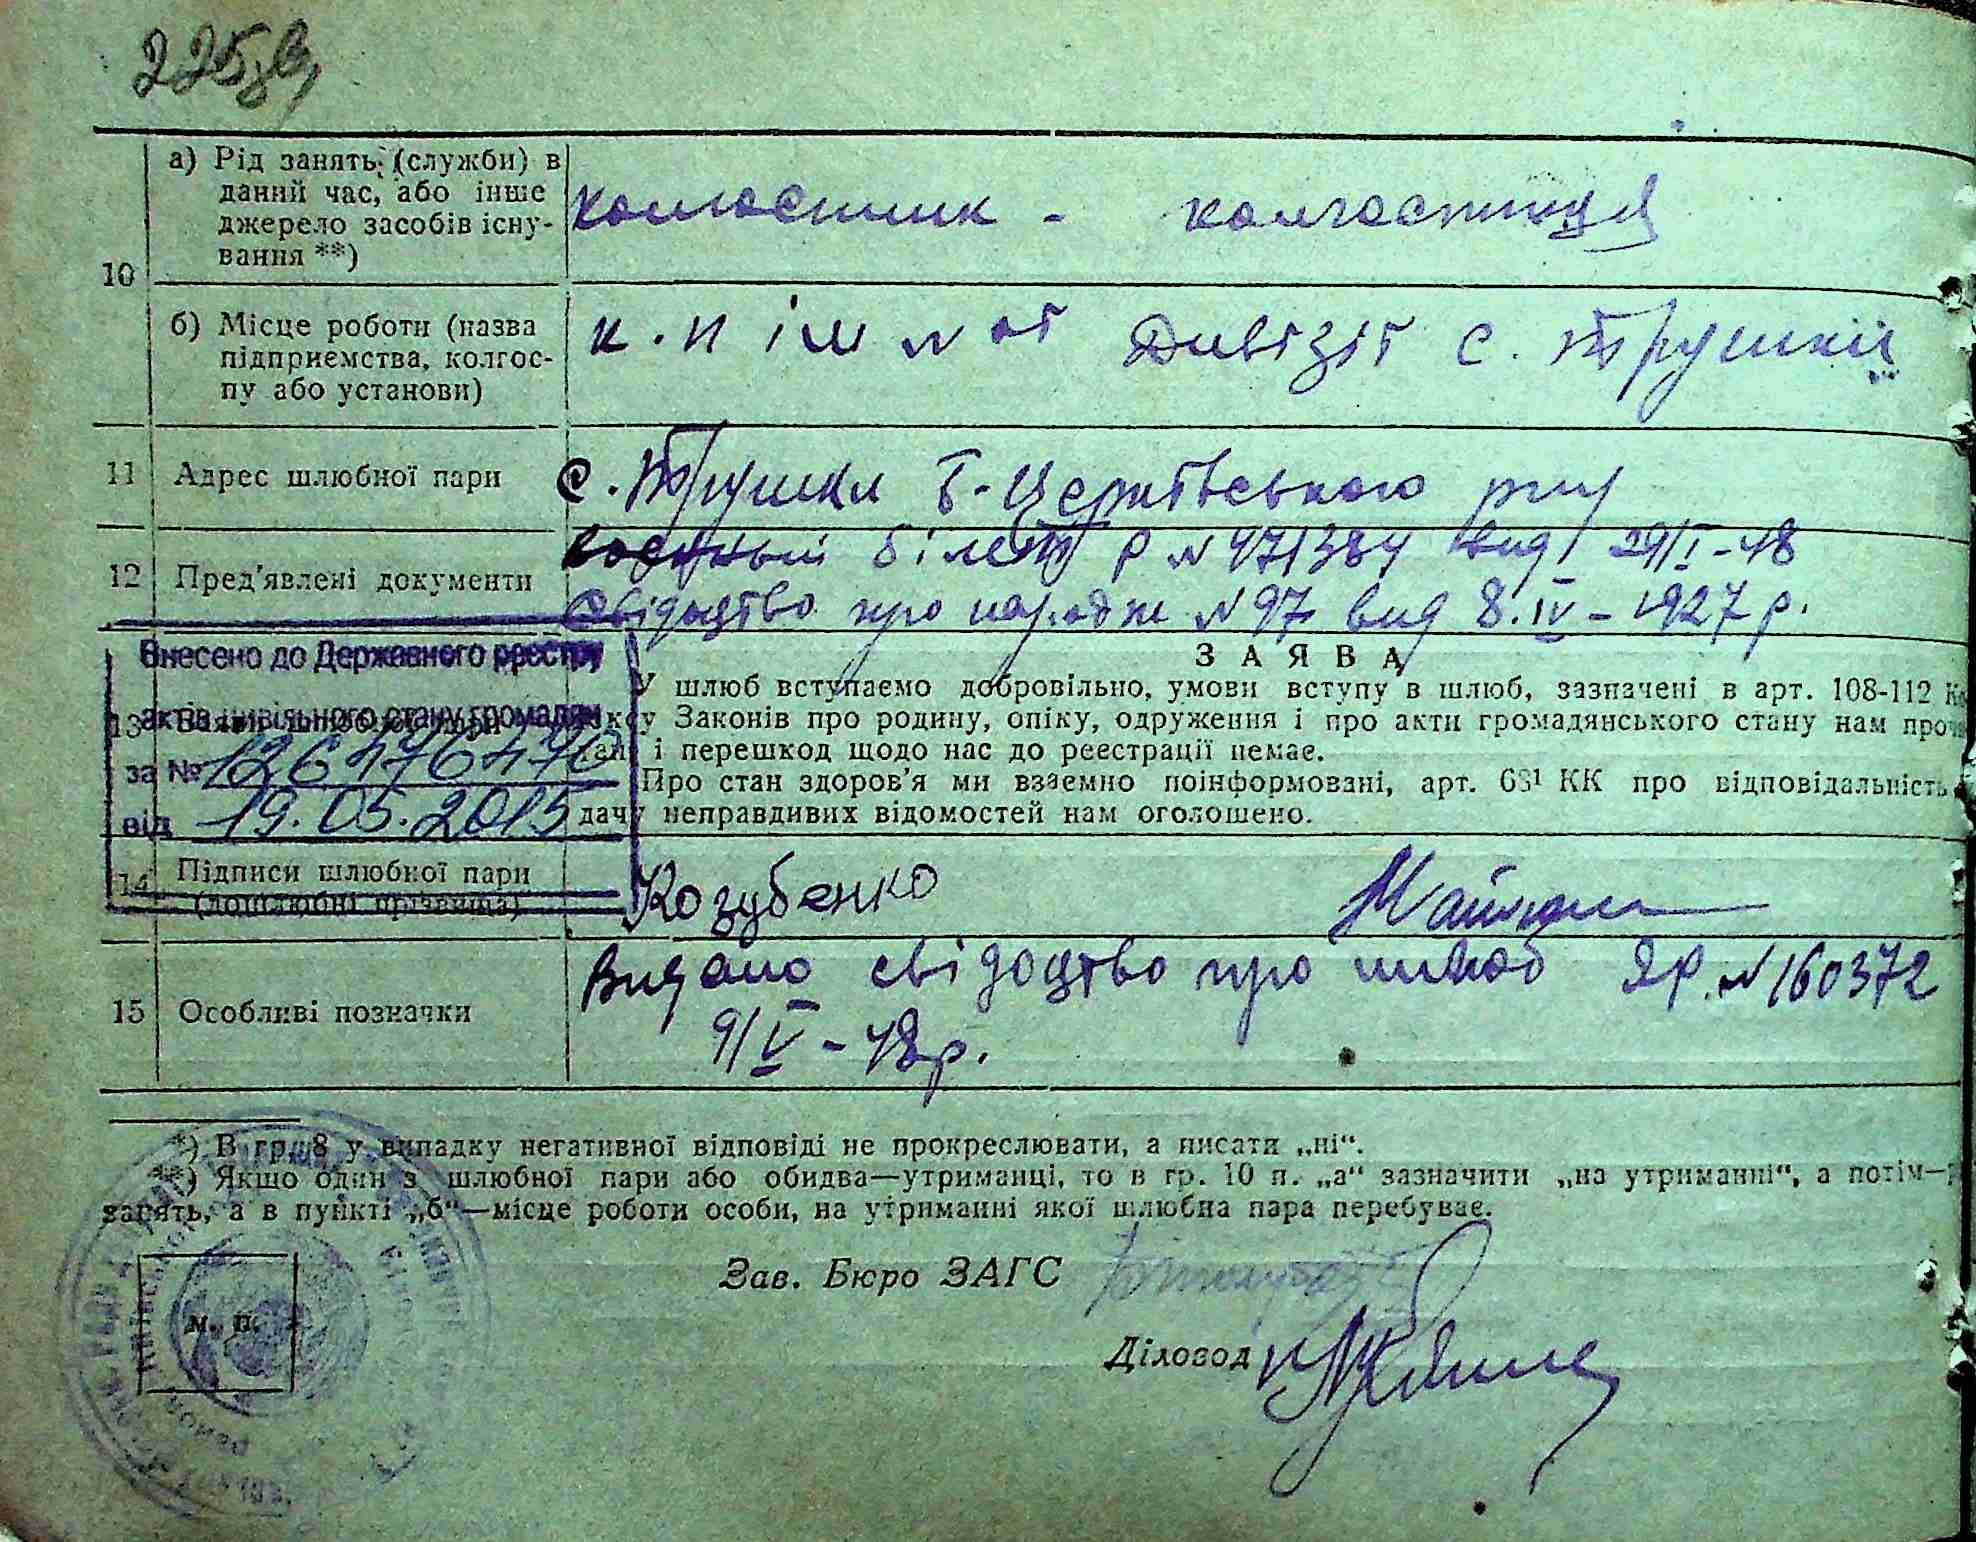 225зв
а) Рід занять (служби) в
даний час, або інше
джерело засобів існу-
вання **)
колгоспник - колгоспниця
10
б) Місце роботи (назва
підприємства, колгос-
пу або установи)
к.п ім Дивізії с. Трушки
11 Адрес шлюбної пари
с. Трушки Б-Церківського р-ну
12 Пред'явлені документи
військовий білет Р №471384 вид 29/I-48
Свідоцтво про народж №97 вид 8.IV-1927 р.
Внесено до Державного реєстру
актів цивільного стану громадян
за № 126476470
від 19.05.2015
13
ЗАЯВА
У шлюб вступаємо добровільно, умови вступу в шлюб, зазначені в арт. 108-112
Законів про родину, опіку, одруження і про акти громадянського стану нам
і перешкод щодо нас до реєстрації немає.
Про стан здоров'я ми взаємно поінформовані, арт. 68¹ КК про відповідальність
дачу неправдивих відомостей нам оголошено.
14 Підписи шлюбної пари
(дошлюбні прізвища)
Козубенко
15 Особливі позначки
Видано свідоцтво про шлюб ЯР. №160372
9/V-48р.
*) В гр. 8 у випадку негативної відповіді не прокреслювати, а писати „ні“.
**) Якщо один з шлюбної пари або обидва—утриманці, то в гр. 10 п. „а“ зазначити „на утриманні“, а потім—
занять, а в пункті „б“—місце роботи особи, на утриманні якої шлюбна пара перебуває.
Зав. Бюро ЗАГС
м. п.
Діловод